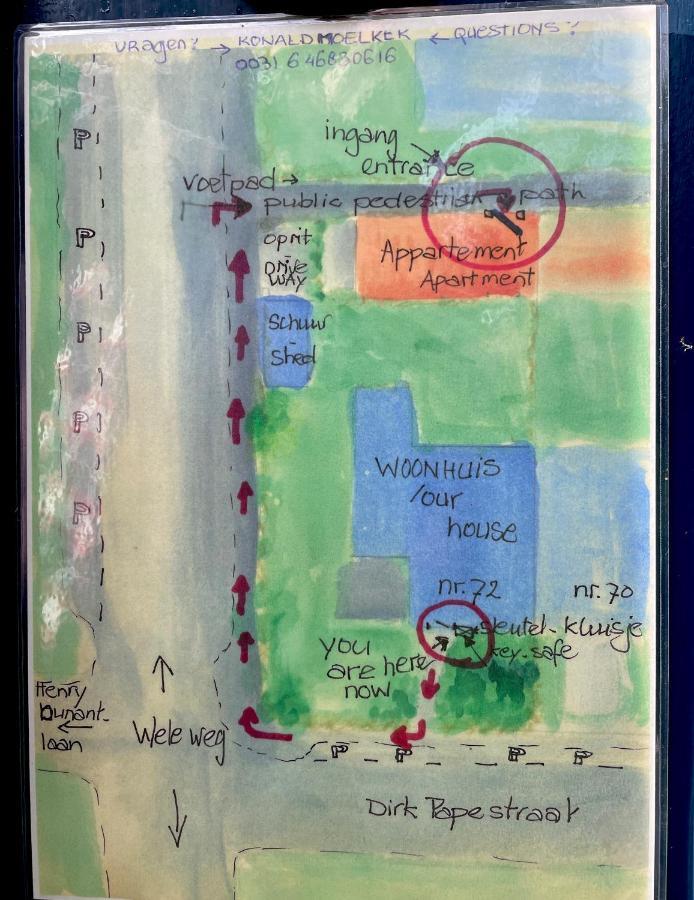 vragen? → RONALD MOELKER ← QUESTIONS?
0031 6 46830616
P
ingang
entrance
voetpad →
public pedestrian path
P
oprit
DRIVE
WAY
Appartement
Apartment
P
schuur
shed
P
WOONHUIS
/our
house
P
nr. 72
nr. 70
sleutel-kluisje
key-safe
you
are here
now
Henry
Dunant-
laan
Wele weg
P P P P
Dirk Papestraat